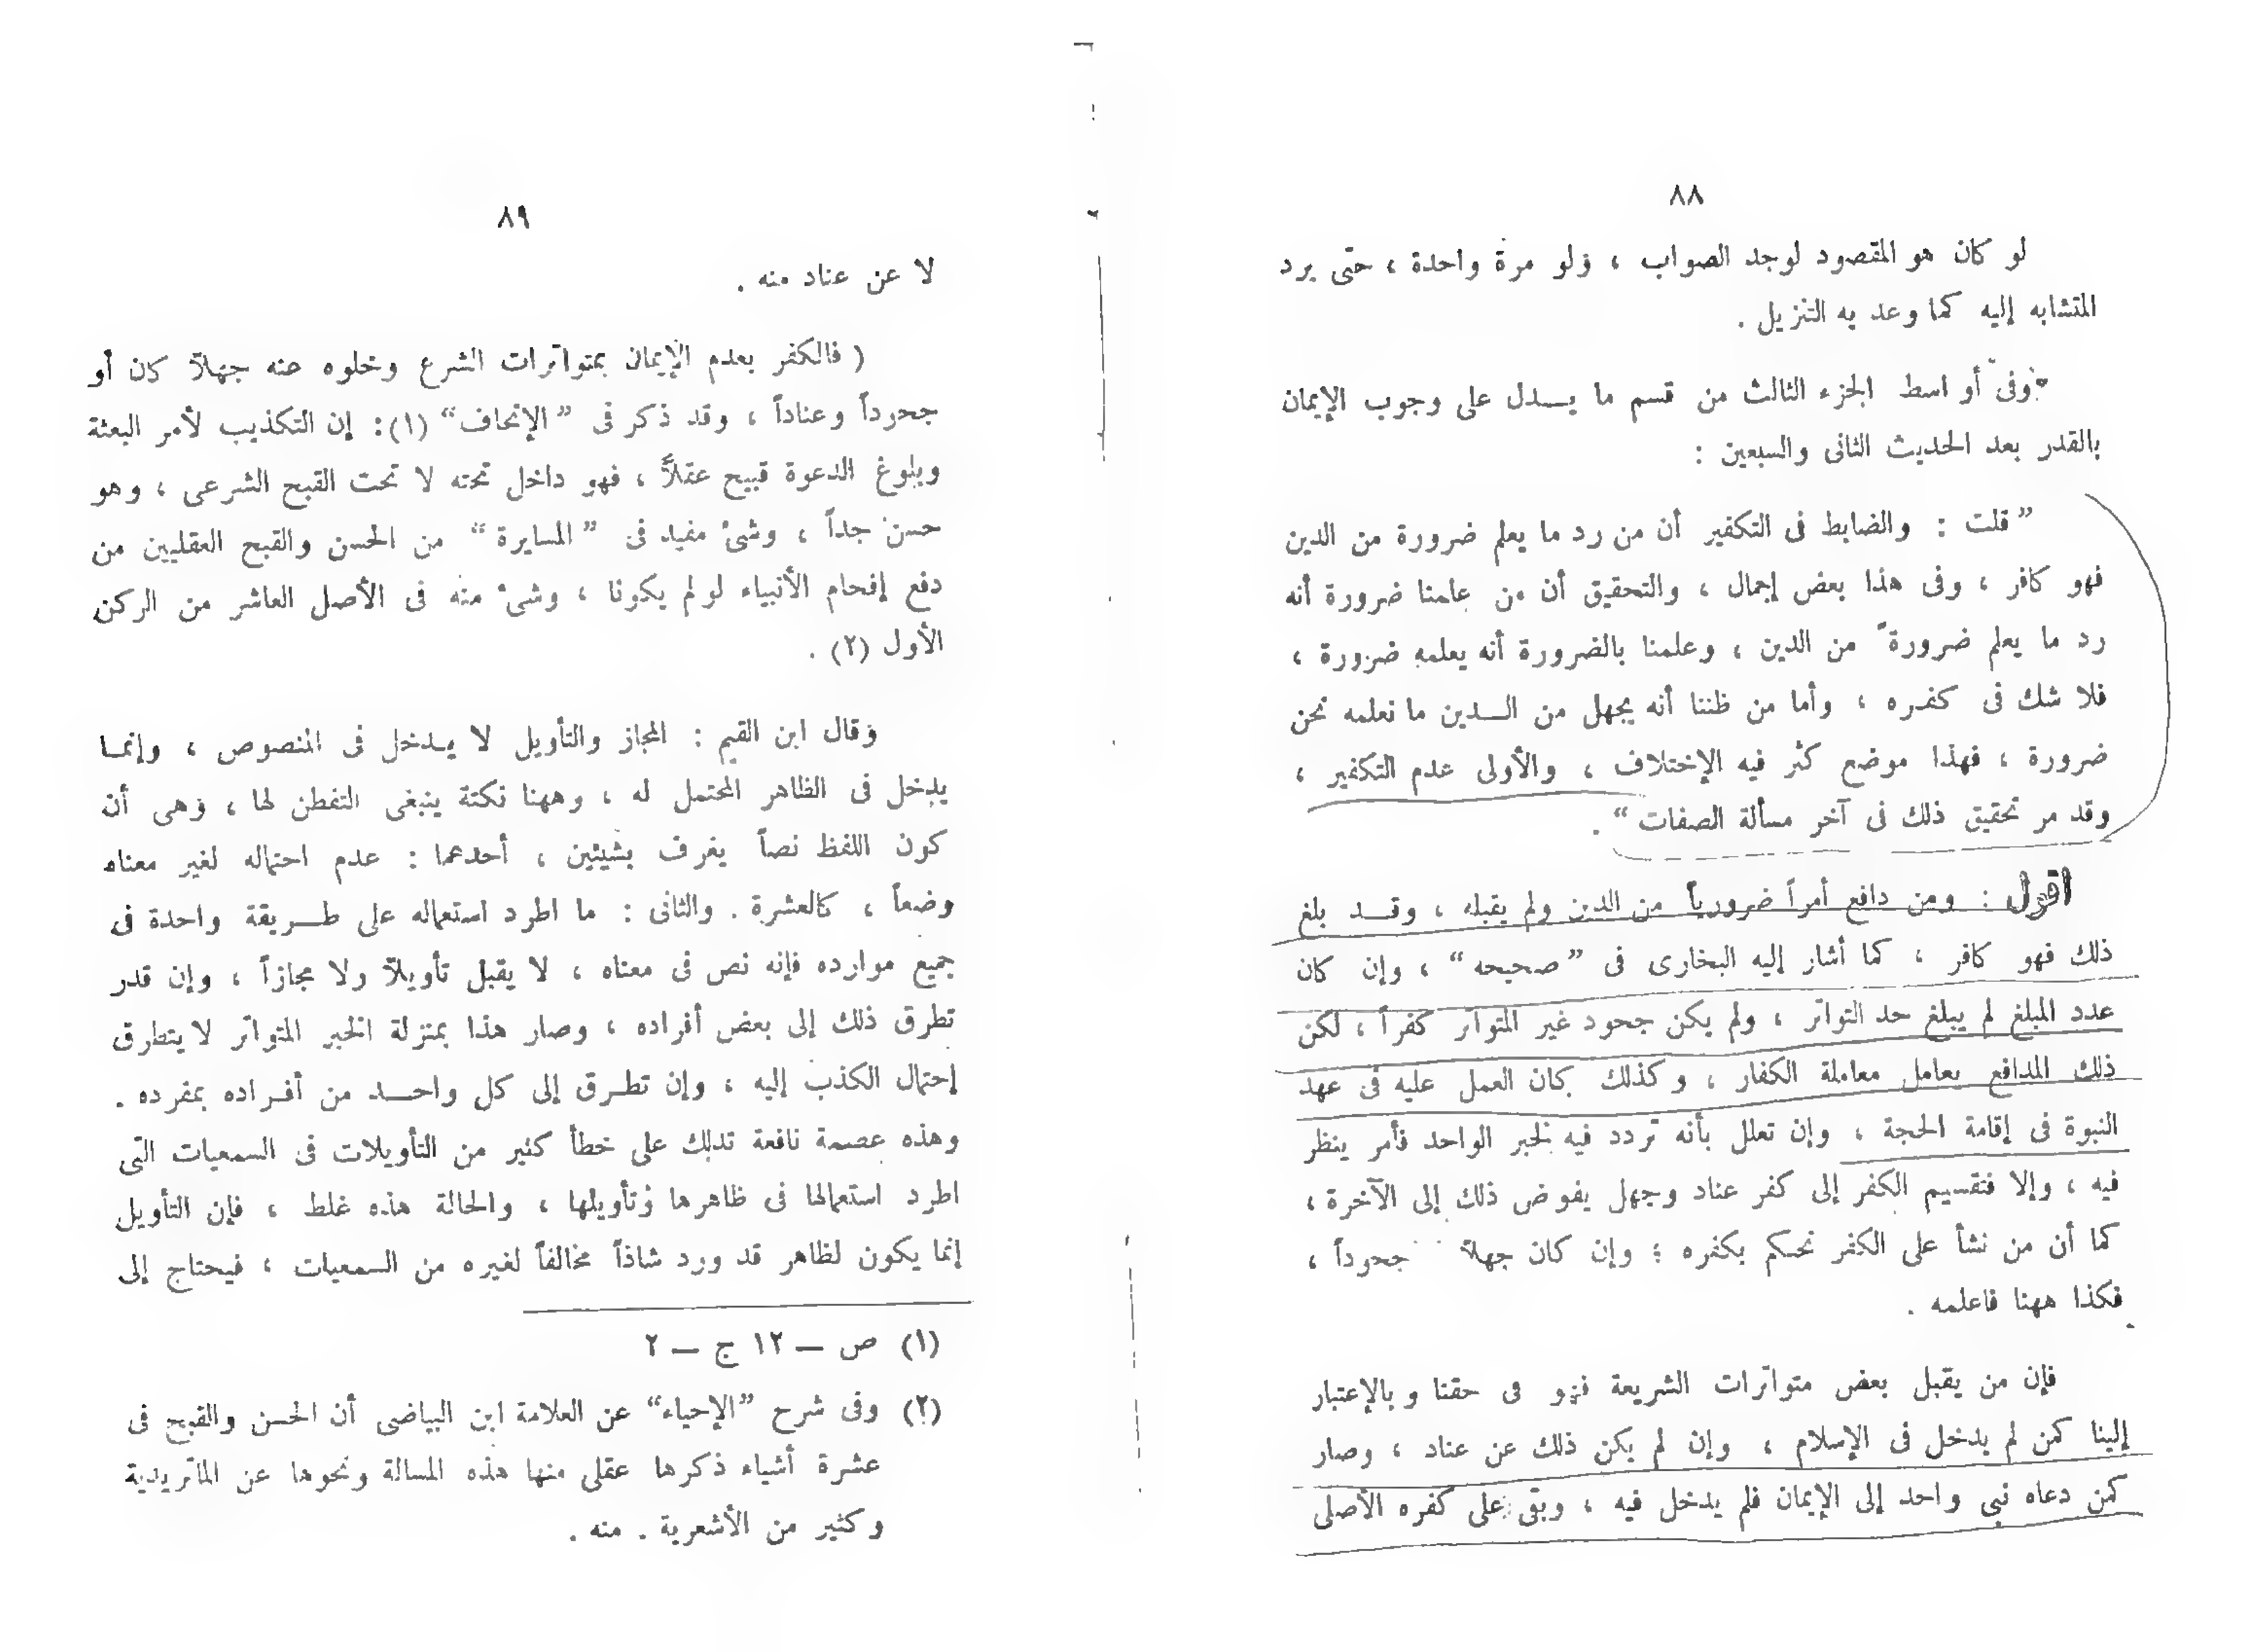 ٨٨
لو كان هو المقصود لوجد الصواب ، ولو مرة واحدة ، حتى يرد
المتشابه إليه كما وعد به التنزيل .
وفى أو اسط الجزء الثالث من قسم ما يــدل على وجوب الإيمان
بالقدر بعد الحديث الثانى والسبعين :
” قلت : والضابط فى التكفير أن من رد ما يعلم ضرورة من الدين
فهو كافر ، وفى هذا بعض إجمال ، والتحقيق أن من علمنا ضرورة أنه
رد ما يعلم ضرورة من الدين ، وعلمنا بالضرورة أنه يعلمه ضرورة ،
فلا شك فى كفره ، وأما من ظننا أنه يجهل من الــدين ما نعلمه نحن
ضرورة ، فهذا موضع كثر فيه الإختلاف ، والأولى عدم التكفير ،
وقد مر تحقيق ذلك فى آخر مسألة الصفات “ .
اقول : ومن دافع أمراً ضرورياً من الدين ولم يقبله ، وقــد بلغ
ذلك فهو كافر ، كما أشار إليه البخارى فى ” صحيحه “ ، وإن كان
عدد المبلغ لم يبلغ حد التواتر ، ولم يكن جحود غير المتواتر كفراً ، لكن
ذلك المدافع يعامل معاملة الكفار ، وكذلك كان العمل عليه فى عهد
النبوة فى إقامة الحجة ، وإن تعلل بأنه تردد فيه لخبر الواحد فأمر ينظر
فيه ، وإلا فتقسيم الكفر إلى كفر عناد وجهل يفوض ذلك إلى الآخرة ،
كما أن من نشأ على الكفر نحكم بكفره ؛ وإن كان جهلاً جحوداً ،
فكذا ههنا فاعلمه .
فإن من يقبل بعض متواترات الشريعة فهو فى حقنا وبالإعتبار
إلينا كمن لم يدخل فى الإسلام ، وإن لم يكن ذلك عن عناد ، وصار
كمن دعاه نبى واحد إلى الإيمان فلم يدخل فيه ، وبقى على كفره الأصلى
٨٩
لا عن عناد منه .
( فالكفر بعدم الإيمان بمتواترات الشرع وخلوه عنه جهلاً كان أو
جحوداً وعناداً ، وقد ذكر فى ” الإتحاف “ (١): إن التكذيب لأمر البعثة
وبلوغ الدعوة قبيح عقلاً ، فهو داخل تحته لا تحت القبح الشرعى ، وهو
حسن جداً ، وشئ مفيد فى ” المسايرة “ من الحسن والقبح العقليين من
دفع إفحام الأنبياء لو لم يكونا ، وشئ منه فى الأصل العاشر من الركن
الأول (٢) .
وقال ابن القيم : المجاز والتأويل لا يــدخل فى المنصوص ، وإنمــا
يدخل فى الظاهر المحتمل له ، وههنا نكتة ينبغى التفطن لها ، وهى أن
كون اللفظ نصاً يعرف بشيئين ، أحدهما : عدم احتماله لغير معناه
وضعاً ، كالعشرة . والثانى : ما اطرد استعماله على طــريقة واحدة فى
جميع موارده فإنه نص فى معناه ، لا يقبل تأويلاً ولا مجازاً ، وإن قدر
تطرق ذلك إلى بعض أفراده ، وصار هذا بمنزلة الخبر المتواتر لا يتطرق
إحتمال الكذب إليه ، وإن تطــرق إلى كل واحــد من أفــراده بمفرده .
وهذه عصمة نافعة تدلك على خطأ كثير من التأويلات فى السمعيات التى
اطرد استعمالها فى ظاهرها وتأويلها ، والحالة هذه غلط ، فإن التأويل
إنما يكون لظاهر قد ورد شاذاً مخالفاً لغيره من السمعيات ، فيحتاج إلى
(١) ص – ١٢ ج – ٢
(٢) وفى شرح ”الإحياء“ عن العلامة ابن البياضى أن الحسن والقبح فى
عشرة أشياء ذكرها عقلى منها هذه المسالة ونحوها عن الماتريدية
وكثير من الأشعرية . منه .